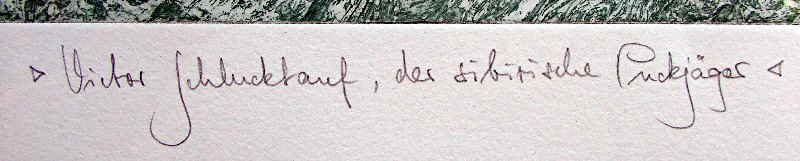 ▹ Victor Schlucktauf, der sibirische Puckjäger ◃